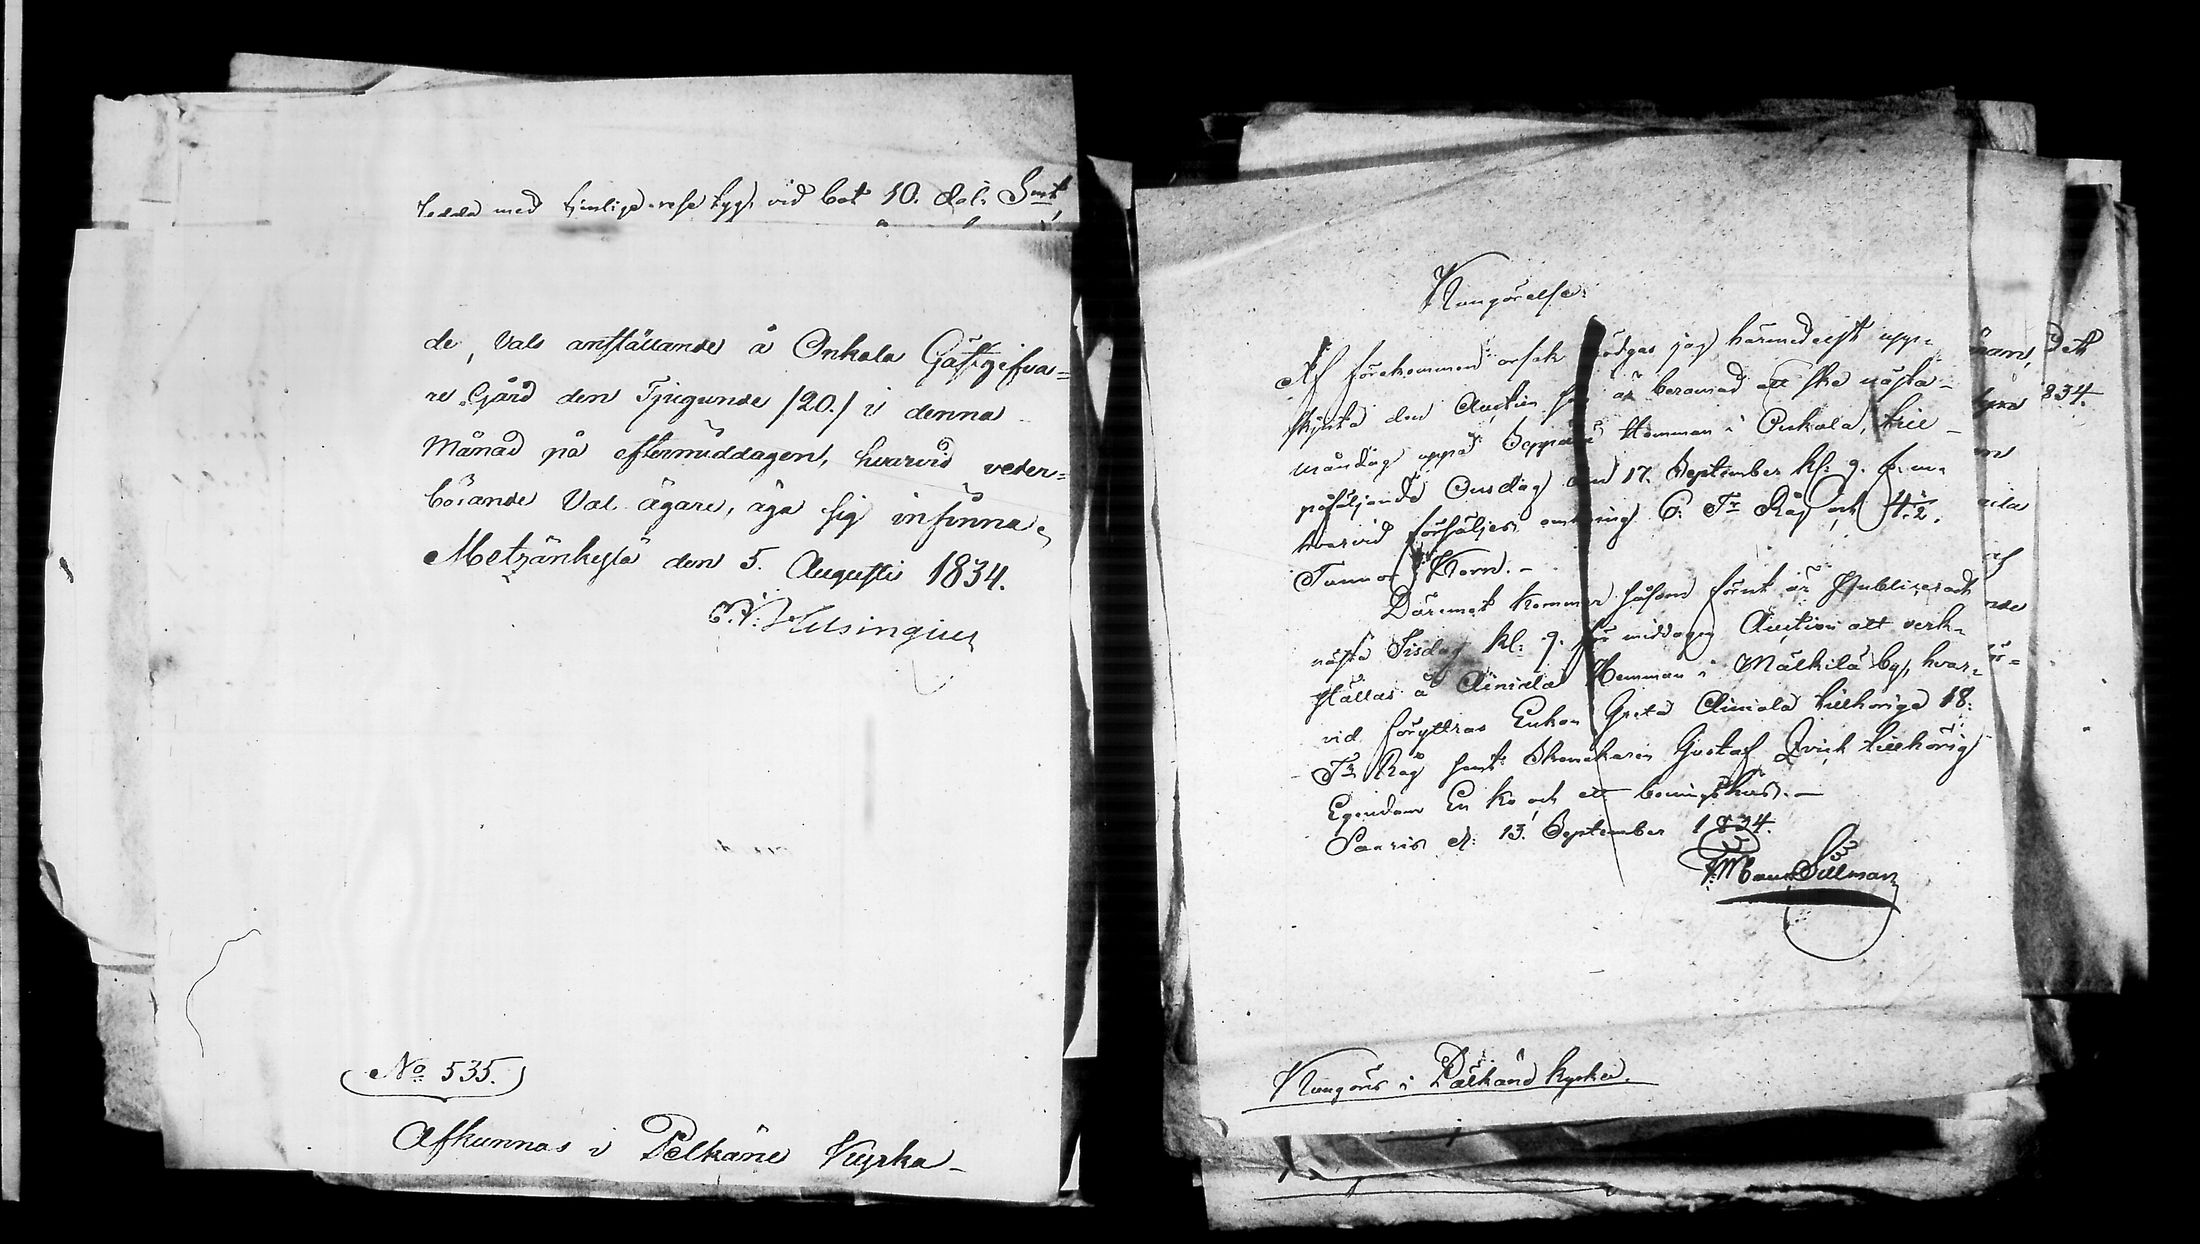 tedda med tjenlige rese tyg, vid bot 10. dal. Smt,
de, Vals anställande å Onkala Gästgifva=
re Gård den Tjugunde /20./ i denna
Månad på eftermiddagen, hvarvid veder=
börande Val ägare, äga sig infinna,
Metzänkylä den 5. Augusti 1834.
Helsingius
No 535.
Afkunnas i Pelkäne Kyrka
Kungörelse
Af förekommen orsak nödgas jag härmedelst upp=
skjuta den Auction som är beramad att ske nästa
måndag uppå Seppälä Hemman i Onkala, till
påföljande Onsdag den 17. September kl: 9. f. m.
hvarvid försäljes omkring 6. Tr Råg och 4 1/2.
Tunnor Korn. -
Däremot kommer såsom förut är Publiceradt
nästa Tisdag kl: 9. för middagen Auction att verk=
ställas å Ainiala Hemman i Mälkilä by, hvar=
vid föryttras Enkan Greta Ainiala tillhöriga 18.
Tr Råg samt Skomakaren Gustaf Qvick tillhörig
Egendom En ko och ett boningshus. -
Saaris d: 13. September 1834.
Sillman
Kungörs i Pälkäne kyrka.
834.